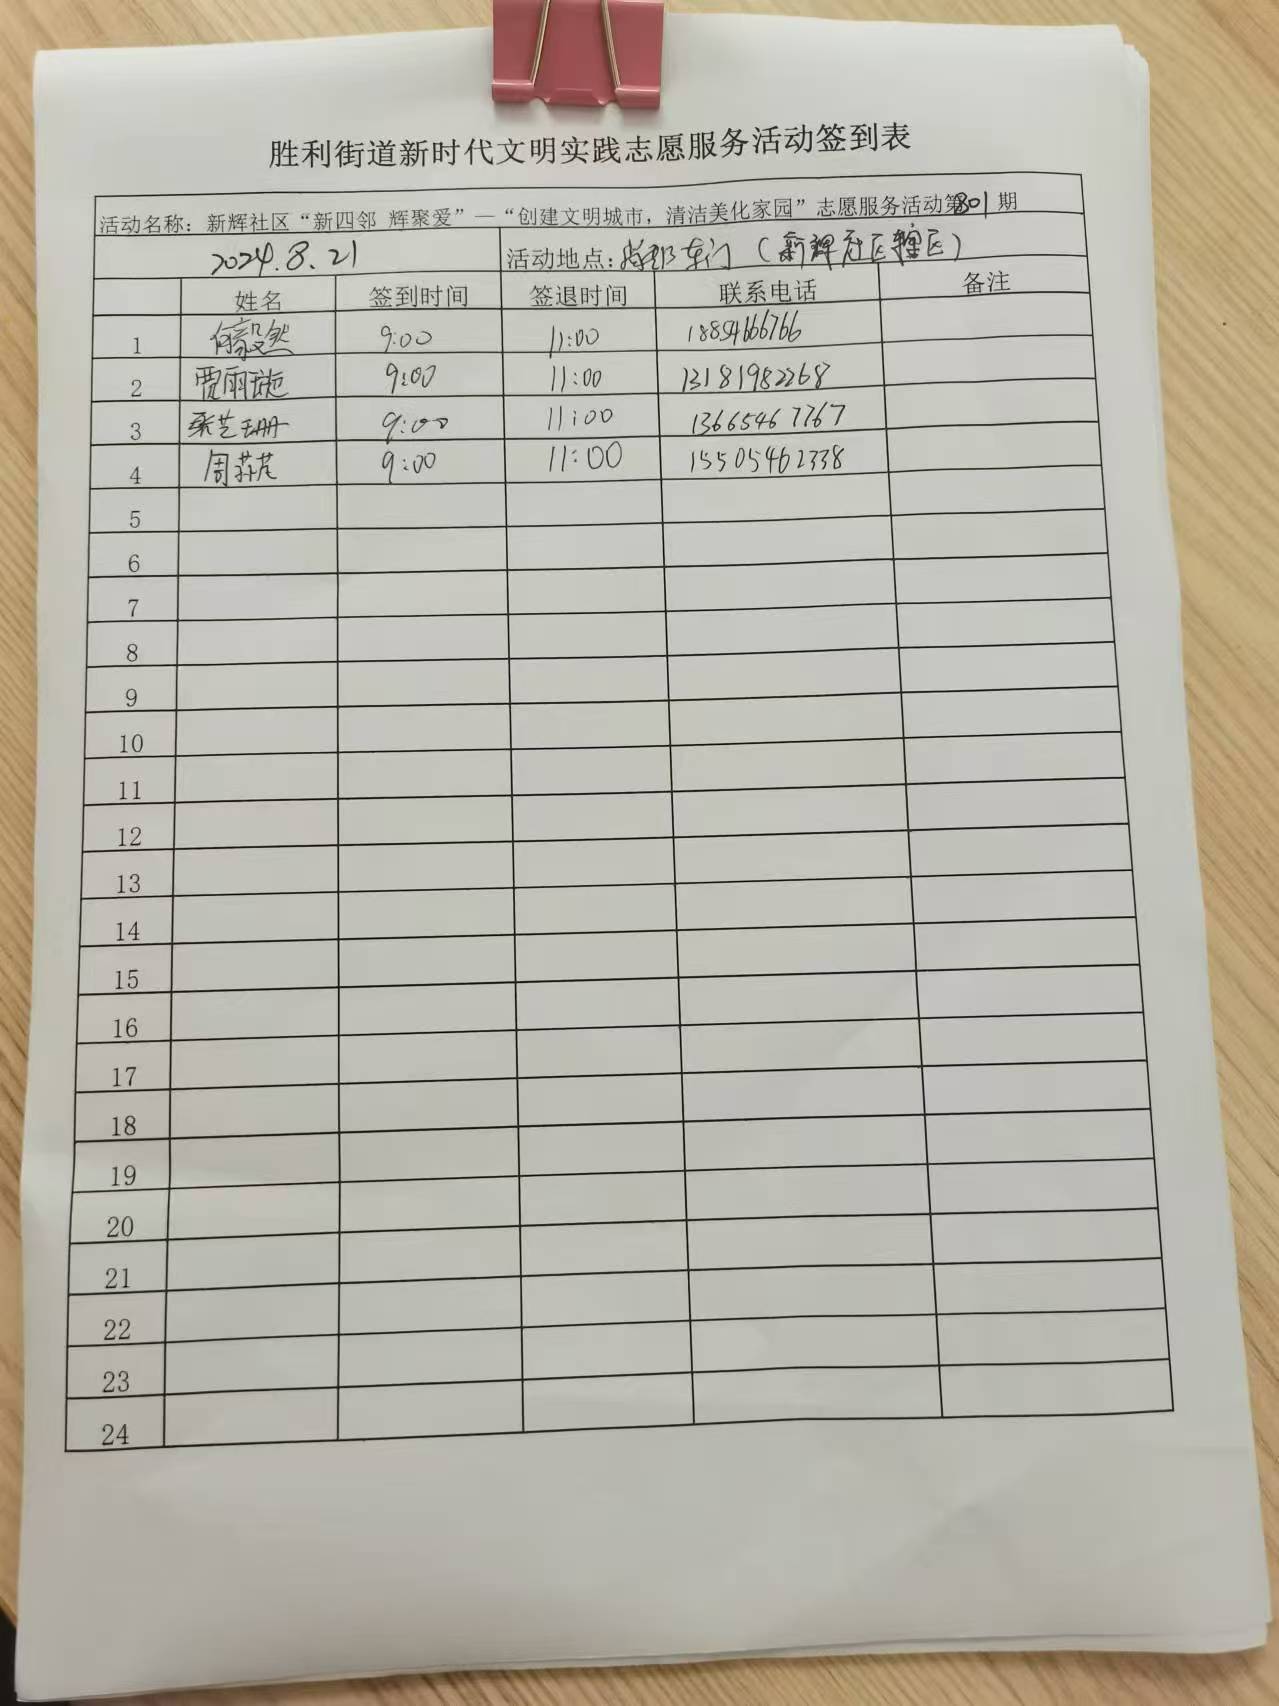 胜利街道新时代文明实践志愿服务活动签到表
活动名称：新辉社区“新四邻 辉聚爱”—“创建文明城市，清洁美化家园”志愿服务活动第301期
2024.8.21 活动地点：东门（新辉社区辖区）
姓名 签到时间 签退时间 联系电话 备注
1 9:00 11:00 18854666766
2 贾雨璇 9:00 11:00 13181982268
3 张艺珊 9:00 11:00 13665467767
4 周 9:00 11:00 15505462338
5
6
7
8
9
10
11
12
13
14
15
16
17
18
19
20
21
22
23
24